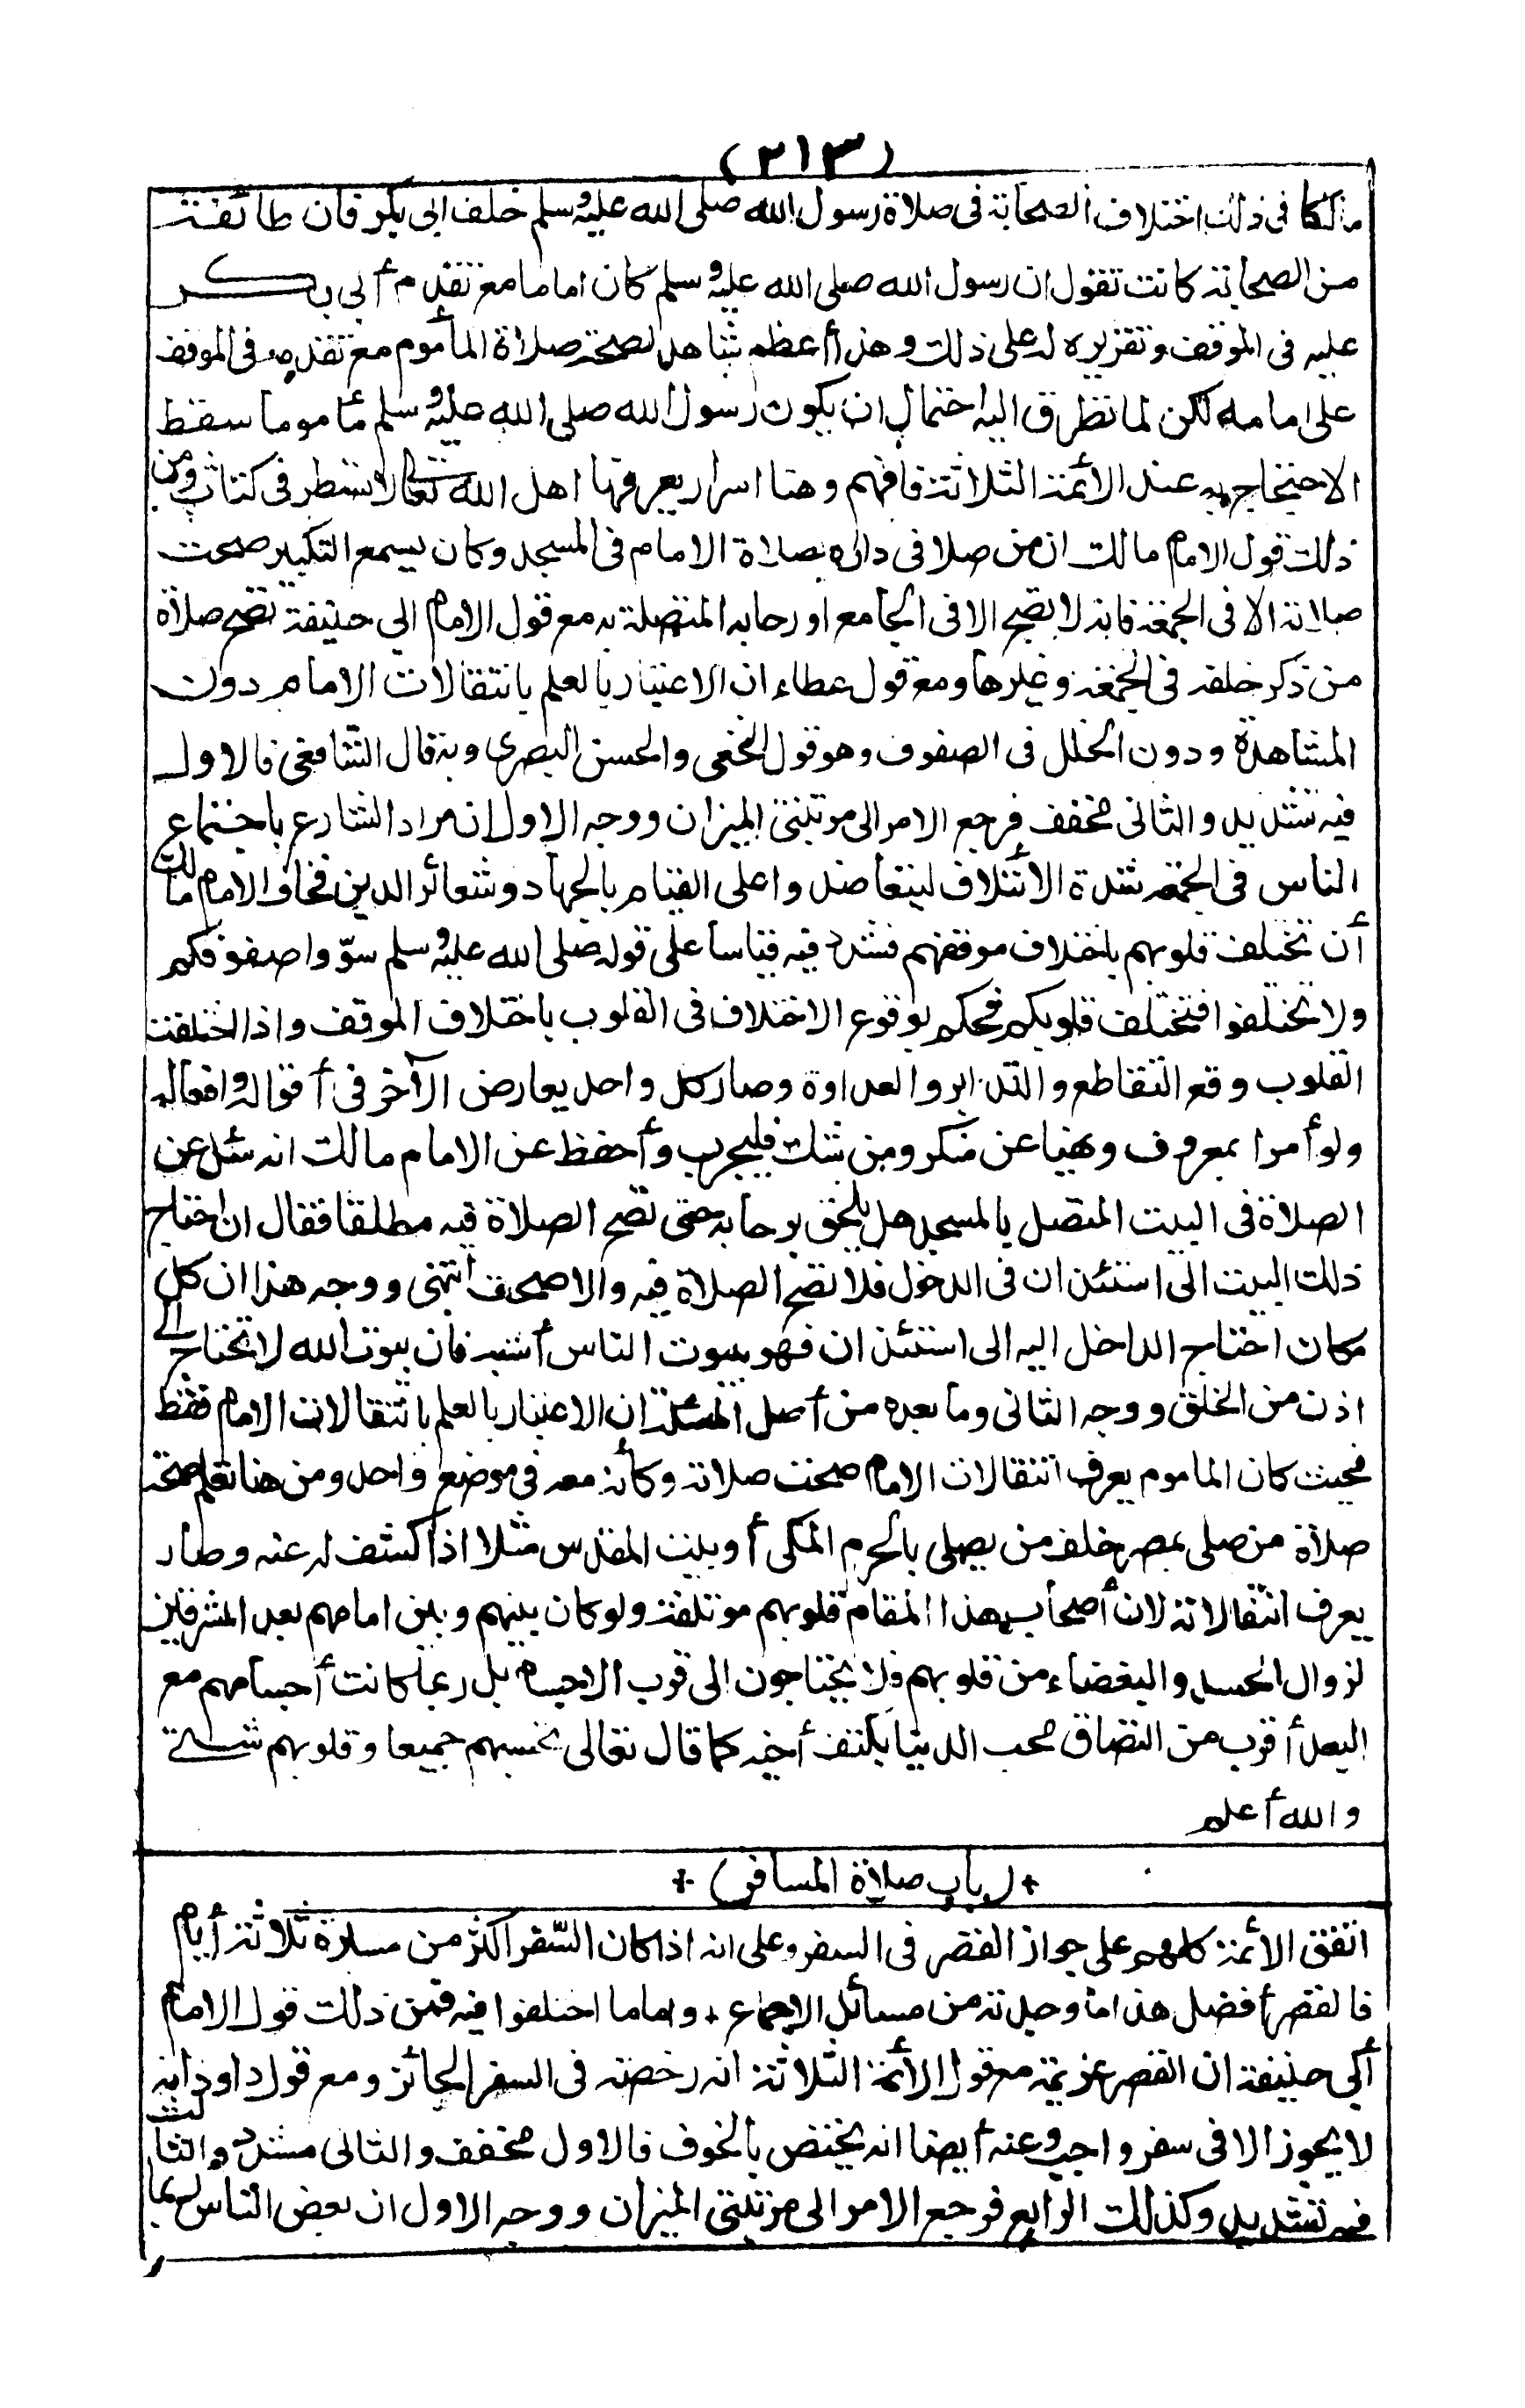 (٢١٣)
مالكا في ذلك اختلاف الصحابة في صلاة رسول الله صلى الله عليه وسلم خلف ابي بكر فان طائفة
من الصحابة كانت تقول ان رسول الله صلى الله عليه وسلم كان اماما مع تقدم أبي بكر
عليه في الموقف وتقريره له على ذلك وهذا أعظم شاهد لصحة صلاة المأموم مع تقدمه في الموقف
على امامه لكن لما تطرق اليه احتمال ان يكون رسول الله صلى الله عليه وسلم مأموما سقط
الاحتجاج به عند الأئمة الثلاثة فافهم وهنا اسرار يعرفها اهل الله تعالى لا تسطر في كتاب ومن
ذلك قول الامام مالك ان من صلا في داره بصلاة الامام في المسجد وكان يسمع التكبير صحت
صلاته الا في الجمعة فانه لا يصح الا في الجامع او رحابه المتصلة به مع قول الامام ابي حنيفة تصح صلاة
من ذكر خلفه في الجمعة وغيرها ومع قول عطاء ان الاعتبار بالعلم بانتقالات الامام دون
المشاهدة ودون الخلل في الصفوف وهو قول النخعي والحسن البصري وبه قال الشافعي فالاول
فيه تشديد والثاني مخفف فرجع الامر الى مرتبتي الميزان ووجه الاول ان مراد الشارع باجتماع
الناس في الجمعة شدة الائتلاف ليتعاضدوا على القيام بالجهاد وشعائر الدين فخاف الامام مالك
أن تختلف قلوبهم باختلاف موقفهم فشدد فيه قياسا على قوله صلى الله عليه وسلم سوّوا صفوفكم
ولا تختلفوا فتختلف قلوبكم فحكم بوقوع الاختلاف في القلوب باختلاف الموقف واذا اختلفت
القلوب وقع التقاطع والتدابر والعداوة وصار كل واحد يعارض الآخر في أقواله وافعاله
ولو أمرا بمعروف ونهيا عن منكر ومن شك فليجرب وأحفظ عن الامام مالك انه سئل عن
الصلاة في البيت المتصل بالمسجد هل يلحق برحابه حتى تصح الصلاة فيه مطلقا فقال ان احتاج
ذلك البيت الى استئذان في الدخول فلا تصح الصلاة فيه والا صحت انتهى ووجه هذا ان كل
مكان احتاج الداخل اليه الى استئذان فهو ببيوت الناس أشبه فان بيوت الله لا تحتاج الى
اذن من الخلق ووجه الثاني وما بعده من أصل المسئلة ان الاعتبار بالعلم بانتقالات الامام فقط
فحيث كان الماموم يعرف انتقالات الامام صحت صلاته وكأنه معه في موضع واحد ومن هنا تعلم صحة
صلاة من صلى بمصر خلف من يصلي بالحرم المكي أو بيت المقدس مثلا اذا كشف له عنه وصار
يعرف انتقالاته لان أصحاب هذا المقام قلوبهم موتلفة ولو كان بينهم وبين امامهم بعد المشرقين
لزوال الحسد والبغضاء من قلوبهم ولا يحتاجون الى قرب الاجسام بل ربما كانت أجسامهم مع
البعد أقرب من التصاق محب الدنيا بكتف أخيه كما قال تعالى تحسبهم جميعا وقلوبهم شتى
والله أعلم
(باب صلاة المسافر)
اتفق الأئمة كلهم على جواز القصر في السفر وعلى انه اذا كان السّفر اكثر من مسيرة ثلاثة أيام
فالقصر أفضل هذا ما وجدته من مسائل الاجماع واما ما اختلفوا فيه فمن ذلك قول الامام
أبي حنيفة ان القصر عزيمة مع قول الأئمة الثلاثة انه رخصة في السفر الجائز ومع قول داود انه
لا يجوز الا في سفر واجب وعنه أيضا انه يختص بالخوف فالاول مخفف والثاني مشدد والثالث
فيه تشديد وكذلك الرابع فرجع الامر الى مرتبتي الميزان ووجه الاول ان بعض الناس ربما